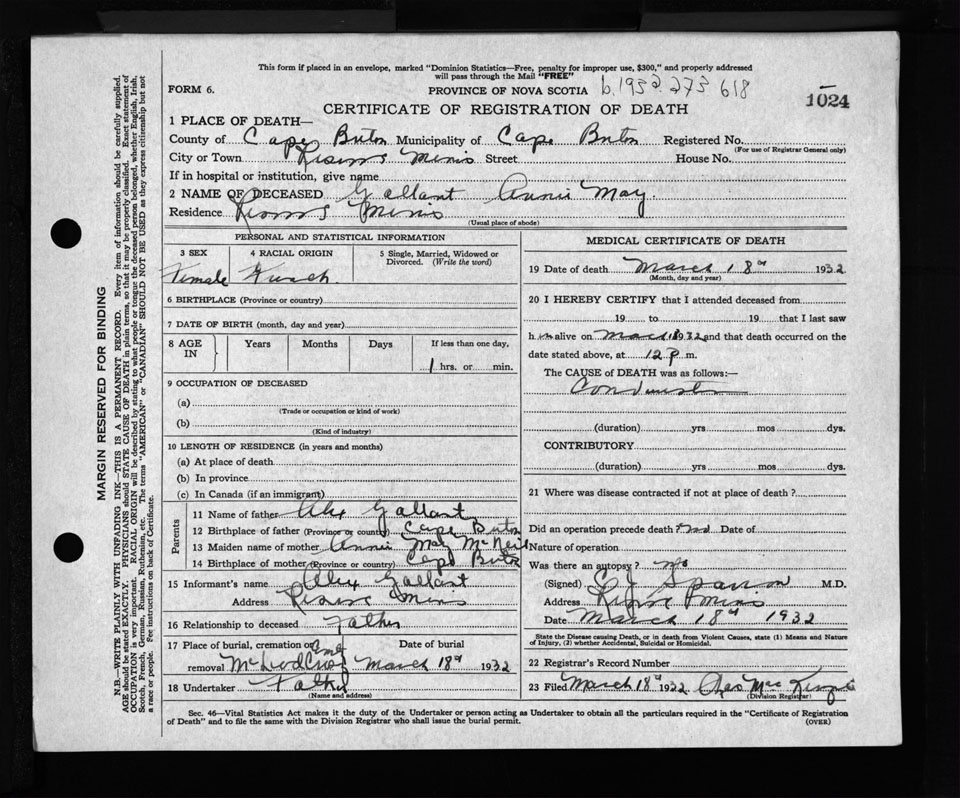 This form if placed in an envelope, marked "Dominion Statistics—Free, penalty for improper use, $300," and properly addressed
will pass through the Mail "FREE"
FORM 6. PROVINCE OF NOVA SCOTIA b.1932.273 618
1024
CERTIFICATE OF REGISTRATION OF DEATH
1 PLACE OF DEATH—
County of Cape Municipality of Cape Registered No.
(For use of Registrar General only)
City or Town Street House No.
If in hospital or institution, give name
2 NAME OF DECEASED Gallant Annie May.
Residence
(Usual place of abode)
PERSONAL AND STATISTICAL INFORMATION
3 SEX 4 RACIAL ORIGIN 5 Single, Married, Widowed or Divorced. (Write the word)
Female
6 BIRTHPLACE (Province or country)
7 DATE OF BIRTH (month, day and year)
8 AGE IN Years Months Days If less than one day,
1 hrs. or min.
9 OCCUPATION OF DECEASED
(a)
(Trade or occupation or kind of work)
(b)
(Kind of industry)
10 LENGTH OF RESIDENCE (in years and months)
(a) At place of death
(b) In province
(c) In Canada (if an immigrant)
Parents
11 Name of father Alex Gallant
12 Birthplace of father (Province or country) Cape
13 Maiden name of mother Annie May McNeil
14 Birthplace of mother (Province or country) Cape
15 Informant's name Alex Gallant
Address
16 Relationship to deceased Father
17 Place of burial, cremation or Date of burial
removal March 18 1932
18 Undertaker Father
(Name and address)
MEDICAL CERTIFICATE OF DEATH
19 Date of death March 18 1932
(Month, day and year)
20 I HEREBY CERTIFY that I attended deceased from
19 to 19 that I last saw
h alive on 1932 and that death occurred on the
date stated above, at 12 P. m.
The CAUSE of DEATH was as follows:—
(duration) yrs mos dys.
CONTRIBUTORY
(duration) yrs mos dys.
21 Where was disease contracted if not at place of death?
Did an operation precede death? Date of
Nature of operation
Was there an autopsy? No
(Signed) M.D.
Address
Date March 18 1932
State the Disease causing Death, or in death from Violent Causes, state (1) Means and Nature
of Injury, (2) whether Accidental, Suicidal or Homicidal.
22 Registrar's Record Number
23 Filed March 18 1932
(Division Registrar)
Sec. 46—Vital Statistics Act makes it the duty of the Undertaker or person acting as Undertaker to obtain all the particulars required in the "Certificate of Registration
of Death" and to file the same with the Division Registrar who shall issue the burial permit.
(OVER)
MARGIN RESERVED FOR BINDING
N.B.—WRITE PLAINLY WITH UNFADING INK—THIS IS A PERMANENT RECORD. Every item of information should be carefully supplied.
AGE should be stated EXACTLY. PHYSICIANS should STATE CAUSE OF DEATH in plain terms, so that it may be properly classified. Exact statement of
OCCUPATION is very important. RACIAL ORIGIN will be described by stating to what people or tongue the deceased person belonged, whether English, Irish,
Scotch, French, German, Russian, Ruthenian, etc. The terms "AMERICAN" or "CANADIAN" SHOULD NOT BE USED as they express citizenship but not
a race or people. See instructions on back of Certificate.